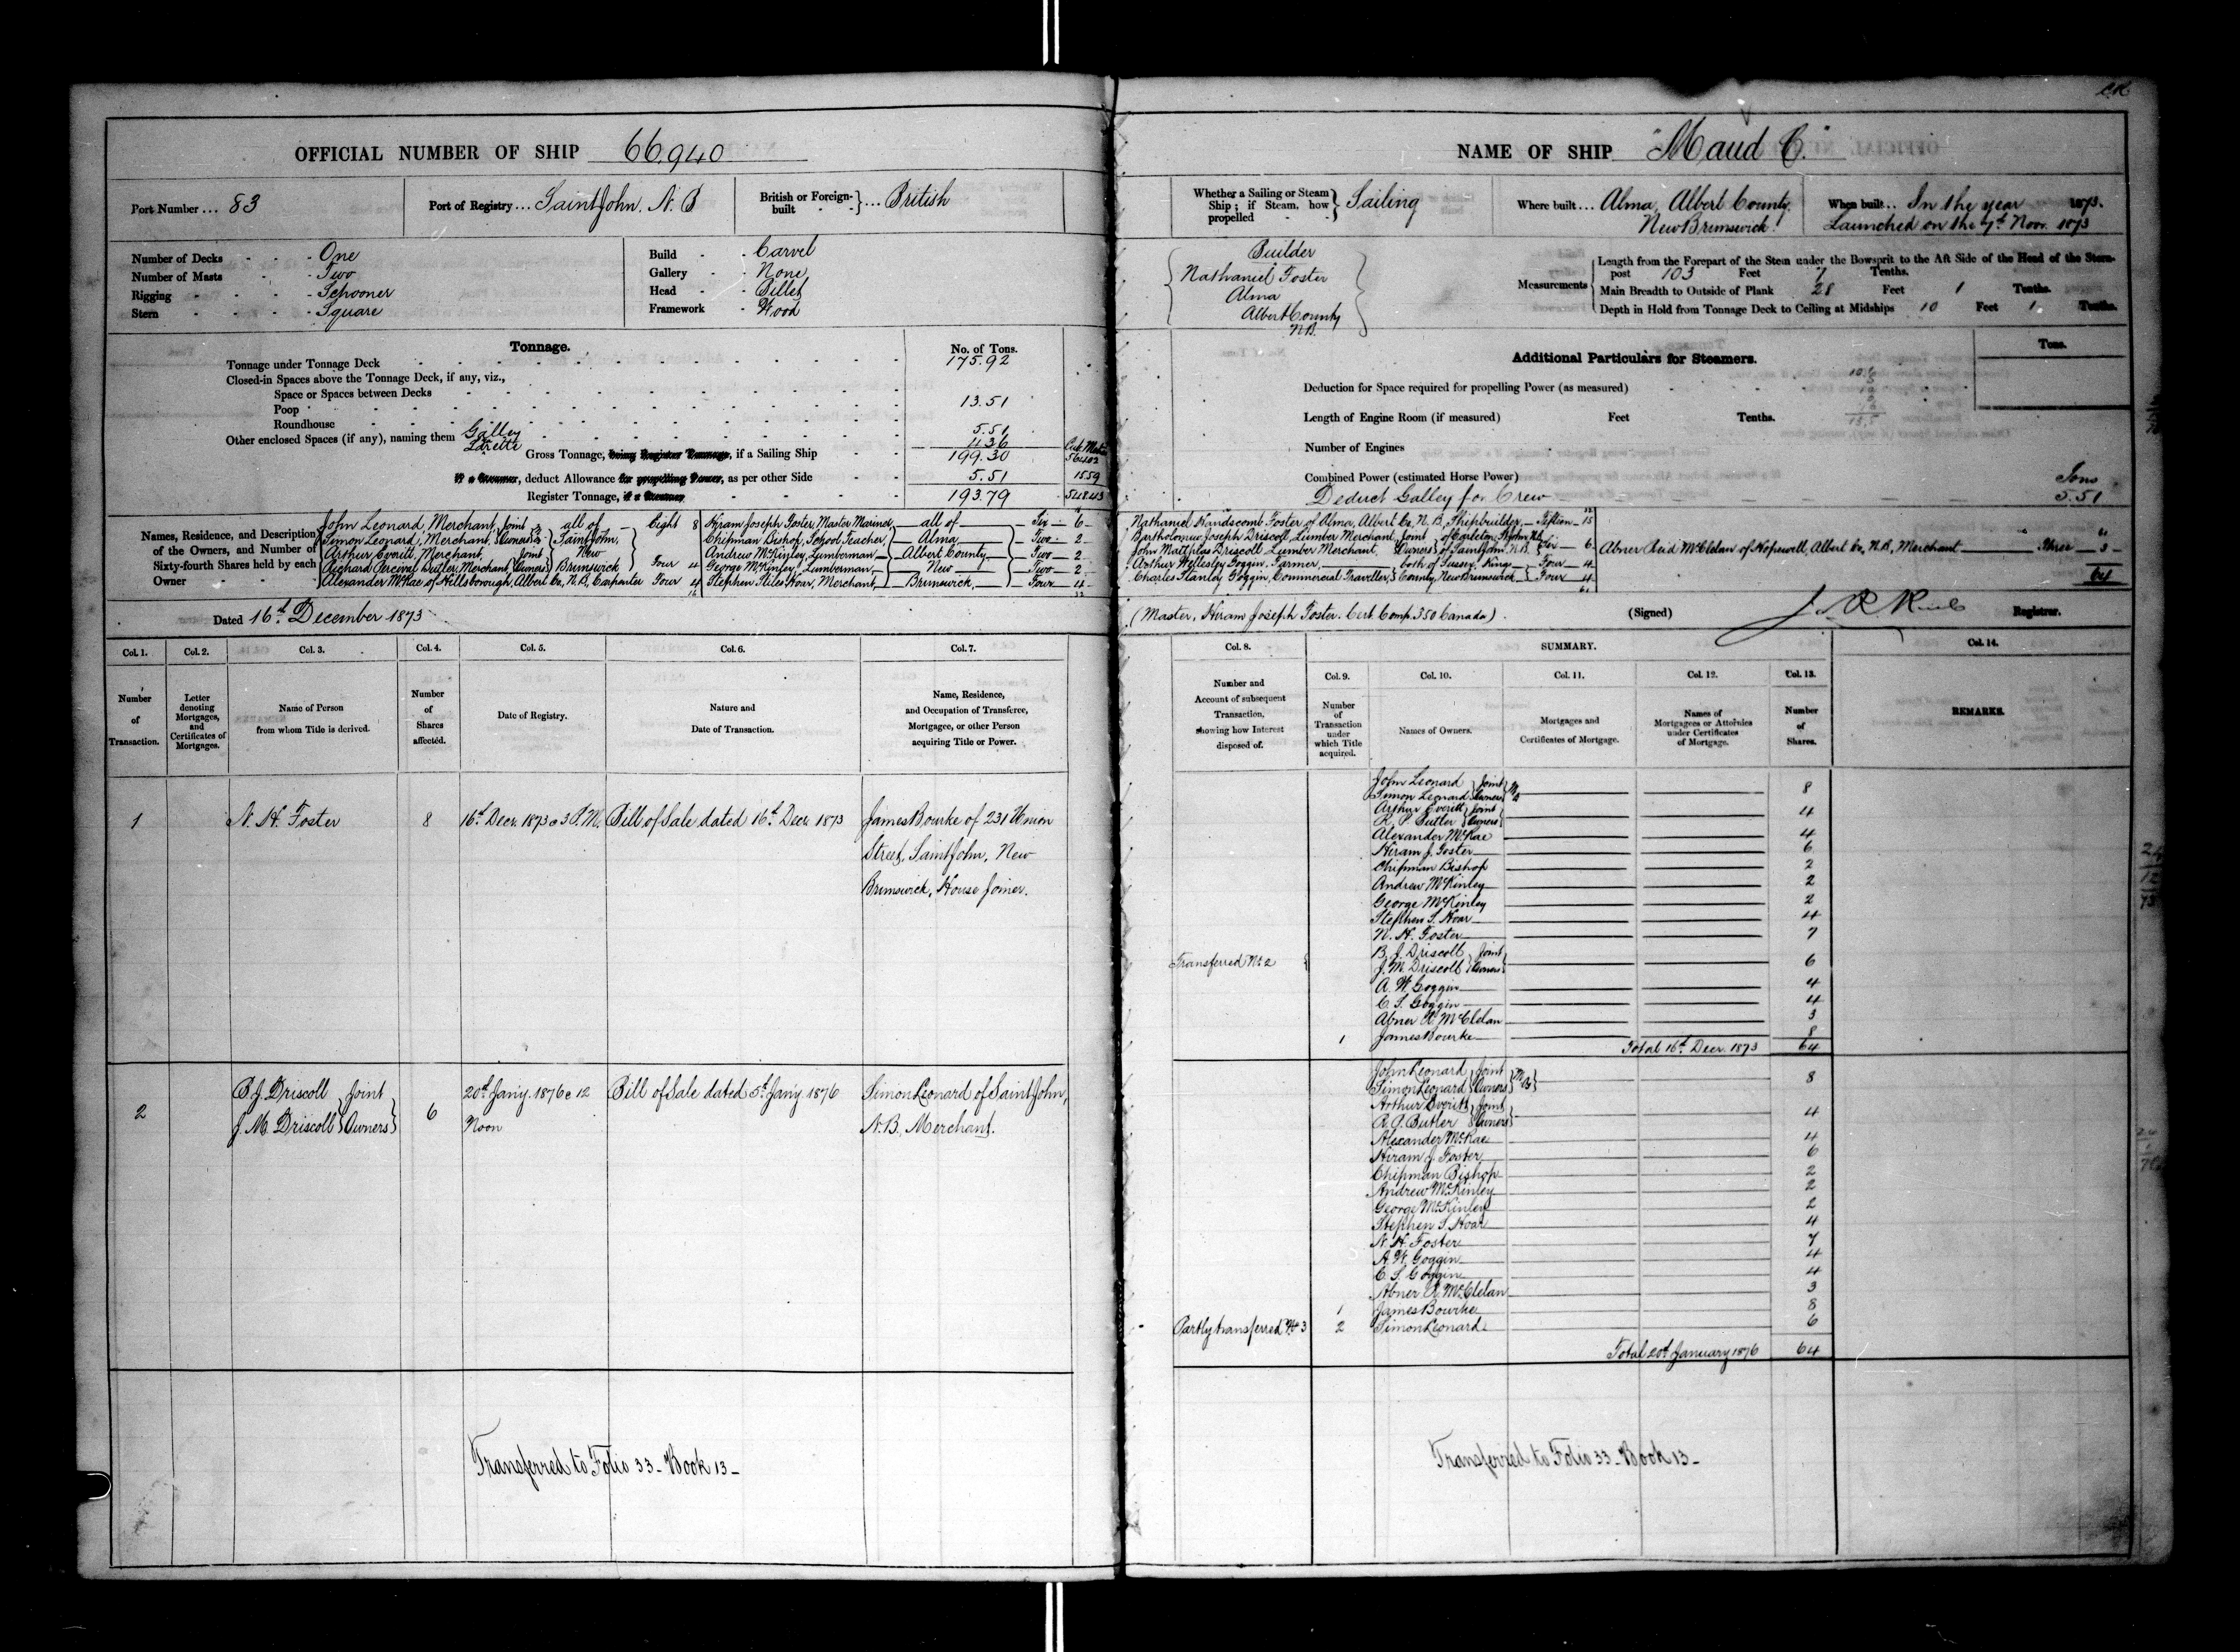 C.R.
OFFICIAL NUMBER OF SHIP 66,940
Port Number ... 83
Port of Registry ... Saint John, N.B
British or Foreign-built } ... British
Number of Decks - - - One
Number of Masts - - - Two
Rigging - - - - Schooner
Stern - - - - Square
Build - - Carvel
Gallery - - None
Head - - Billet
Framework - Wood
Tonnage.
No. of Tons.
Tonnage under Tonnage Deck 175.92
Closed-in Spaces above the Tonnage Deck, if any, viz.,
Space or Spaces between Decks
Poop 13.51
Roundhouse
Other enclosed Spaces (if any), naming them Galley 5.51
Lazette
Gross Tonnage, being Register Tonnage, if a Sailing Ship 199.30
If a Steamer, deduct Allowance for propelling Power, as per other Side 5.51 15.59
Register Tonnage, if a Steamer 193.79 548.43
Names, Residence, and Description of the Owners, and Number of Sixty-fourth Shares held by each Owner
John Leonard, Merchant, Joint } all of Eight 8
Simon Leonard, Merchant, Owners } Saint John,
Arthur Everitt, Merchant, Joint } New
Richard Percival Butler, Merchant, Owners } Brunswick Four 4
Alexander McRae of Hillsborough, Albert Co, N.B, Carpenter Four 4
Hiram Joseph Foster, Master Mariner, all of Six 6
Chipman Bishop, School Teacher, Alma Two 2
Andrew McKinley, Lumberman Albert County Two 2
George McKinley, Lumberman New Two 2
Stephen Stiles Hoar, Merchant, Brunswick, Four 4
Dated 16th December 1873
Col. 1. Col. 2. Col. 3. Col. 4. Col. 5. Col. 6. Col. 7.
Number of Transaction.
Letter denoting Mortgages, and Certificates of Mortgages.
Name of Person from whom Title is derived.
Number of Shares affected.
Date of Registry.
Nature and Date of Transaction.
Name, Residence, and Occupation of Transferee, Mortgagee, or other Person acquiring Title or Power.
1 N. H. Foster 8 16th Decr. 1873 @ 3 P.M. Bill of Sale dated 16th Decr. 1873 James Bourke of 231 Union
Street, Saint John, New
Brunswick, House Joiner.
2 B. J. Driscoll } Joint 6 20th Jany. 1876 @ 12 Bill of Sale dated 5th Jany 1876 Simon Leonard of Saint John,
J. M. Driscoll } Owners Noon N.B., Merchant.
Transferred to Folio 33 - Book 13 -
NAME OF SHIP "Maud C."
Whether a Sailing or Steam Ship; if Steam, how propelled } Sailing
Where built ... Alma, Albert County,
New Brunswick
When built ... In the year 1873.
Launched on the 7th Novr. 1873
Builder
Nathaniel Foster
Alma
Albert County
N.B.
Measurements
Length from the Forepart of the Stem under the Bowsprit to the Aft Side of the Head of the Stern-
post 103 Feet 7 Tenths.
Main Breadth to Outside of Plank 28 Feet 1 Tenths.
Depth in Hold from Tonnage Deck to Ceiling at Midships 10 Feet 1 Tenths.
Additional Particulars for Steamers.
Tons.
Deduction for Space required for propelling Power (as measured)
Length of Engine Room (if measured) Feet Tenths.
Number of Engines
Combined Power (estimated Horse Power) Tons
Deduct Galley for Crew 5.51
Nathaniel Handscomb Foster of Alma, Albert Co, N.B, Shipbuilder, Fifteen 15
Bartholomew Joseph Driscoll, Lumber Merchant, Joint } of Carleton, St John N.B.
John Matthias Driscoll, Lumber Merchant, Owners } of Saint John, N.B. Six 6
Arthur Wellesley Goggin, Farmer, both of Sussex, Kings Four 4
Charles Stanley Goggin, Commercial Traveller, County, New Brunswick Four 4
Abner Reid McClelan of Hopewell, Albert Co, N.B, Merchant Three 3
64
(Master, Hiram Joseph Foster. Cert. Comp. 350 Canada)
(Signed) Registrar.
Col. 8. SUMMARY. Col. 14.
Col. 9. Col. 10. Col. 11. Col. 12. Col. 13.
Number and Account of subsequent Transaction, showing how Interest disposed of.
Number of Transaction under which Title acquired.
Names of Owners.
Mortgages and Certificates of Mortgage.
Names of Mortgagees or Attornies under Certificates of Mortgage.
Number of Shares.
REMARKS.
John Leonard } Joint
Simon Leonard } Owners 8
Arthur Everitt } Joint
R. P. Butler } Owners 4
Alexander McRae 4
Hiram J. Foster 6
Chipman Bishop 2
Andrew McKinley 2
George McKinley 2
Stephen S. Hoar 4
N. H. Foster 7
Transferred No 2 { B. J. Driscoll } Joint
J. M. Driscoll } Owners 6
A. W. Goggin 4
C. S. Goggin 4
Abner R. McClelan 3
1 James Bourke 8
Total 16th Decr. 1873 64
John Leonard } Joint
Simon Leonard } Owners 8
Arthur Everitt } Joint
R. P. Butler } Owners 4
Alexander McRae 4
Hiram J. Foster 6
Chipman Bishop 2
Andrew McKinley 2
George McKinley 2
Stephen S. Hoar 4
N. H. Foster 7
A. W. Goggin 4
C. S. Goggin 4
Abner R. McClelan 3
1 James Bourke 8
Partly transferred No 3 2 Simon Leonard 6
Total 20th January 1876 64
Transferred to Folio 33 - Book 13 -